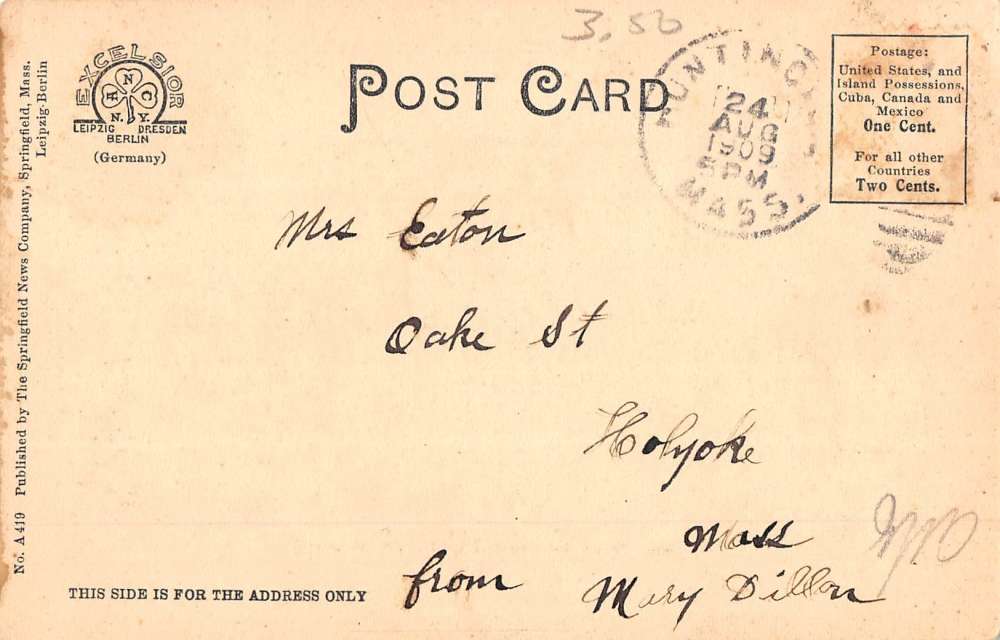 3.50
POST CARD
EXCELSIOR
A N C
N.Y.
LEIPZIG DRESDEN
BERLIN
(Germany)
24
AUG
1909
5 PM
MASS.
Postage:
United States, and
Island Possessions,
Cuba, Canada and
Mexico
One Cent.
For all other
Countries
Two Cents.
Mrs Eaton
Oake St
Holyoke
Mass
from Mary Dillon
THIS SIDE IS FOR THE ADDRESS ONLY
No. A 419 Published by The Springfield News Company, Springfield, Mass.
Leipzig-Berlin